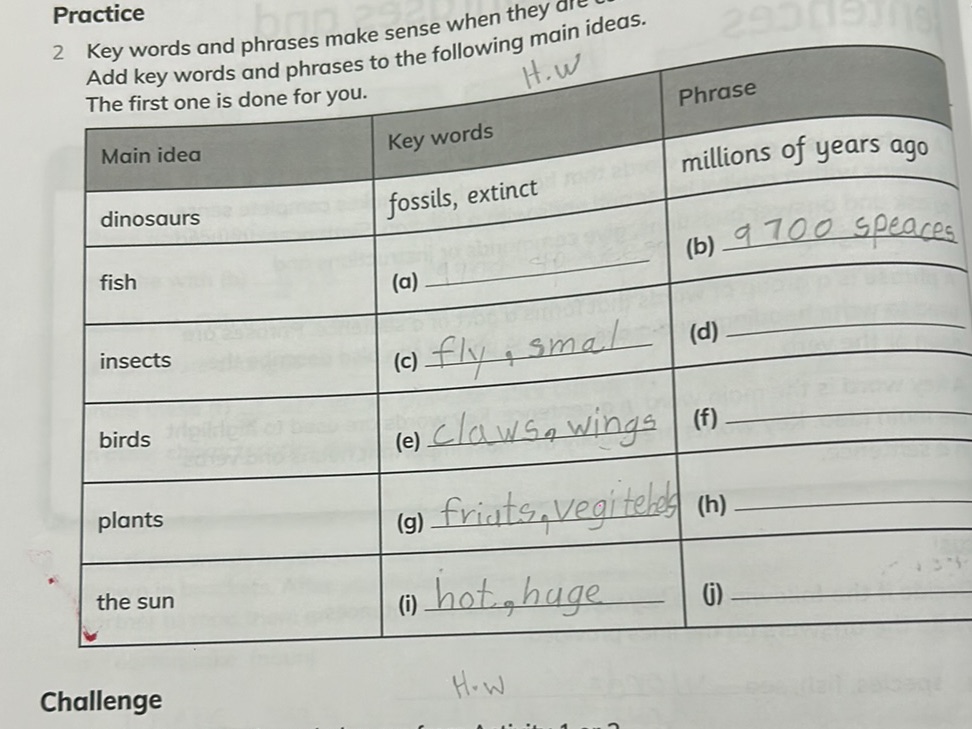 Practice
2 Key words and phrases make sense when they are
Add key words and phrases to the following main ideas.
The first one is done for you.
H.W
Main idea Key words Phrase
dinosaurs fossils, extinct millions of years ago
fish (a) (b) 9700 speaces
insects (c) fly, smal (d)
birds (e) claws, wings (f)
plants (g) friuts, vegitebels (h)
the sun (i) hot, huge (j)
H.W
Challenge